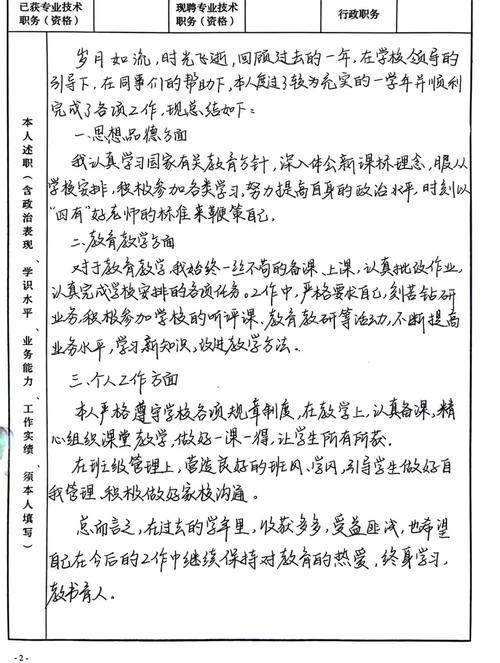 已获专业技术
职务（资格）
现聘专业技术
职务（资格）
行政职务
本人述职（含政治表现、学识水平、业务能力、工作实绩、须本人填写）
岁月如流，时光飞逝，回顾过去的一年，在学校领导的
引导下，在同事们的帮助下，本人度过了较为充实的一学年并顺利
完成了各项工作，现总结如下：
一、思想品德方面
我认真学习国家有关教育方针，深入体会新课标理念，服从
学校安排，积极参加各类学习，努力提高自身的政治水平，时刻以
“四有”好老师的标准来鞭策自己。
二、教育教学方面
对于教育教学，我始终一丝不苟的备课、上课，认真批改作业，
认真完成学校安排的各项任务。工作中，严格要求自己，刻苦钻研
业务，积极参加学校的听评课、教育教研等活动，不断提高
业务水平，学习新知识，改进教学方法。
三、个人工作方面
本人严格遵守学校各项规章制度，在教学上，认真备课，精
心组织课堂教学，做好一课一得，让学生所有所获。
在班级管理上，营造良好的班风、学风，引导学生做好自
我管理，积极做好家校沟通。
总而言之，在过去的学年里，收获多多，受益匪浅，也希望
自己在今后的工作中继续保持对教育的热爱，终身学习，
教书育人。
-2-